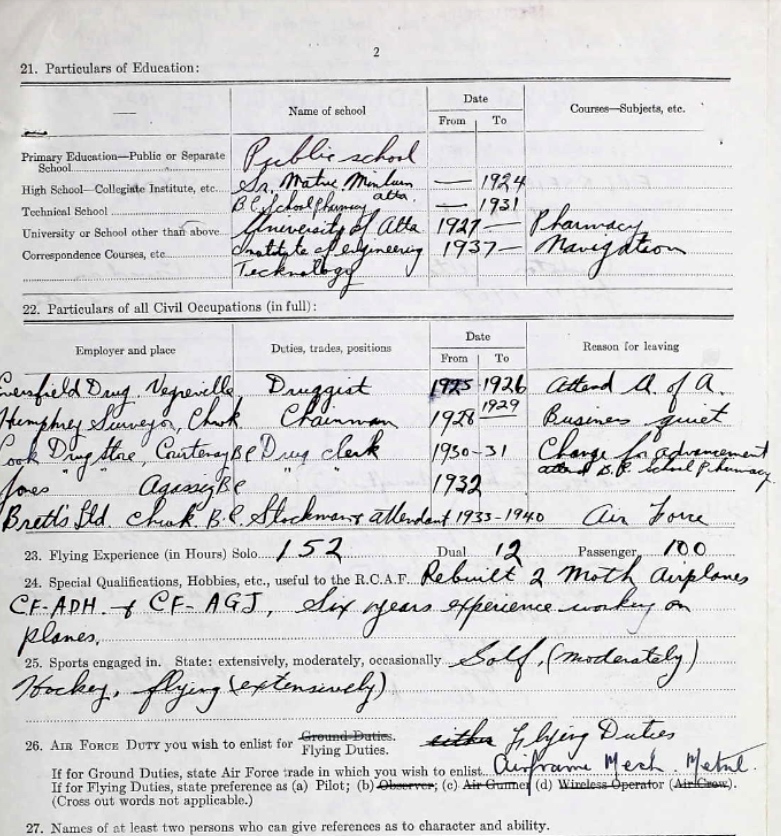 2
21. Particulars of Education:
Name of school Date Courses—Subjects, etc.
From To
Primary Education—Public or Separate School Public school
High School—Collegiate Institute, etc. Sr. Matric Minburn Alta. — 1924
Technical School B.C. School Pharmacy — 1931
University or School other than above University of Alta 1927 — Pharmacy
Correspondence Courses, etc. Institute of engineering 1937 — Navigation
Technology
22. Particulars of all Civil Occupations (in full):
Employer and place Duties, trades, positions Date Reason for leaving
From To
Drug. Vegreville Druggist 1925 1926 Attend U. of A.
Humphrey Surveyor, Chwk. Chainman 1928 1929 Business quiet
Cook Drug Store, Courtenay BC Drug clerk 1930-31 Change for advancement
attend B.C. School Pharmacy.
" " Agassiz BC " " 1932
Brett's Ltd. Chwk. B.C. Stockman & attendant 1933-1940 Air Force
23. Flying Experience (in Hours) Solo 152 Dual 12 Passenger 100
24. Special Qualifications, Hobbies, etc., useful to the R.C.A.F. Rebuilt 2 Moth Airplanes
CF-ADH. & CF-AGJ, Six years experience working on
planes.
25. Sports engaged in. State: extensively, moderately, occasionally Golf, (moderately)
Hockey, flying (extensively)
26. AIR FORCE DUTY you wish to enlist for Ground Duties. Flying Duties. either Flying Duties
If for Ground Duties, state Air Force trade in which you wish to enlist. Airframe Mech. Metal.
If for Flying Duties, state preference as (a) Pilot; (b) Observer; (c) Air Gunner (d) Wireless Operator (Air Crew).
(Cross out words not applicable.)
27. Names of at least two persons who can give references as to character and ability.